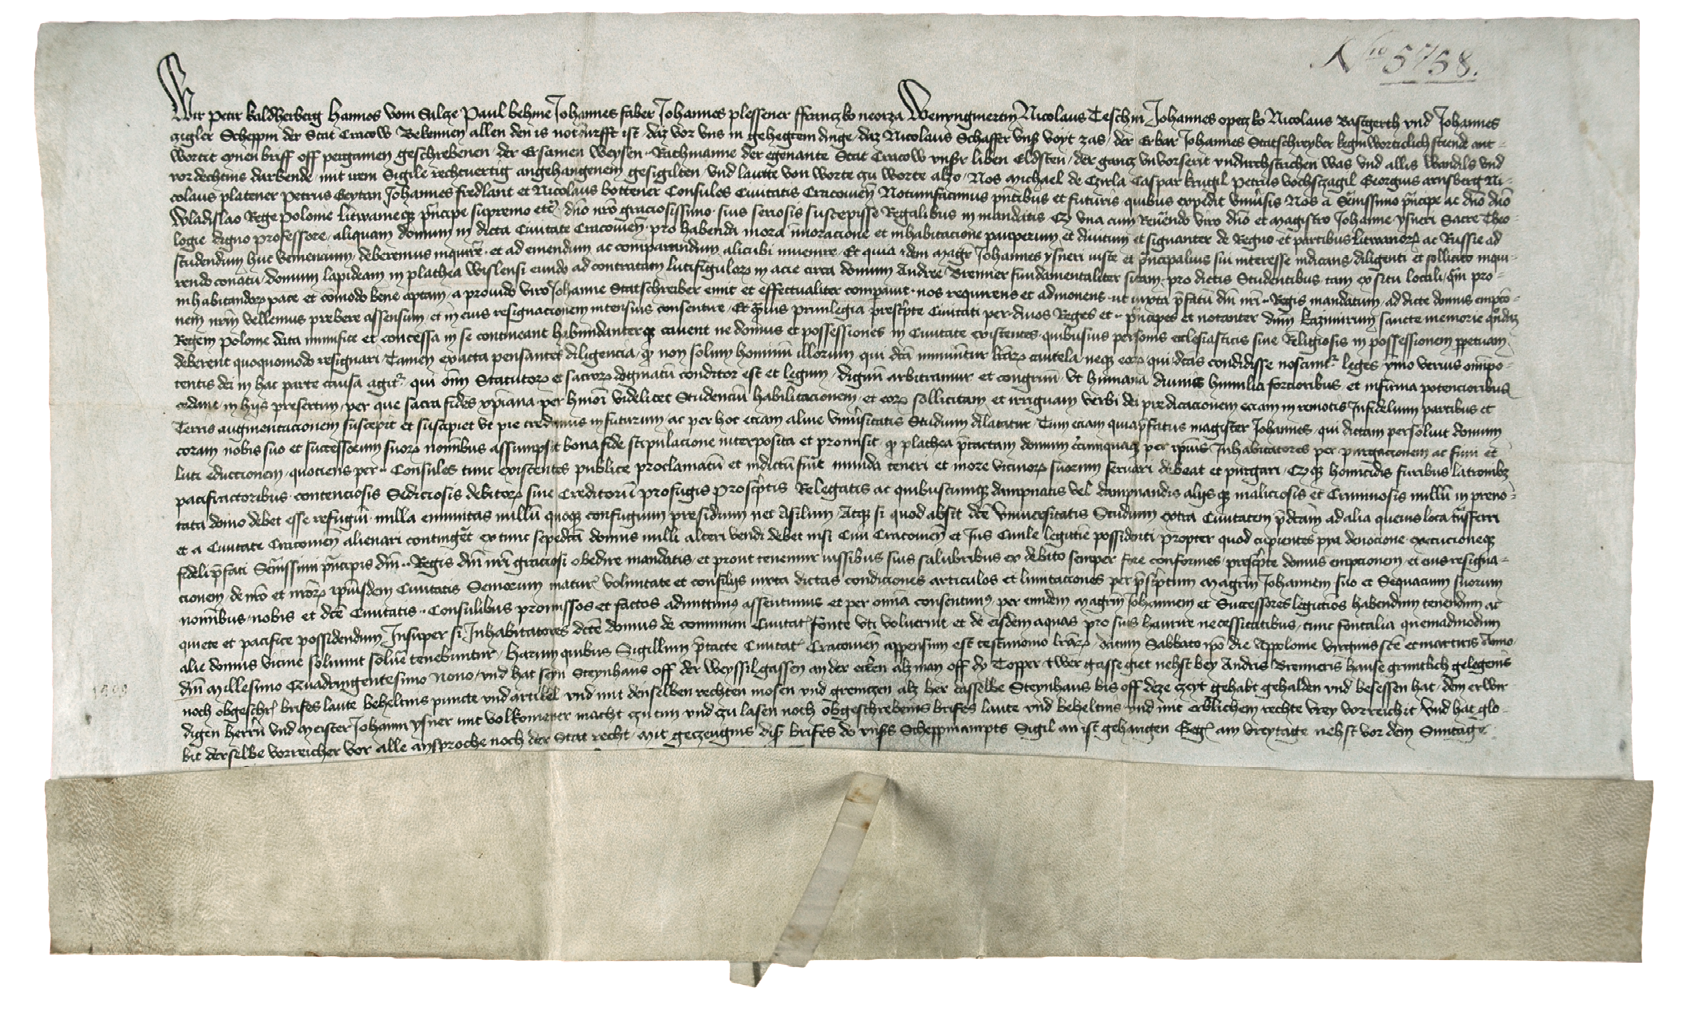 Nro 5758.
Wir Petir kaldherberg Hannos vom Sulcze Paul behme Johannes faber Johannes plessener ffranczko neorza Wenyngmertin Nicolaus Teschin Johannes opeczko Nicolaus Bastgerth vnd Johannes
czigler Scheppin der Stat Cracow Bekennen allen den is notdurfft ist daz vor vns in gehegtem dinge daz Nicolaus Schaffer vnß voyt zas der Erbar Johannes Statschreyber keginworticlich steende ant-
wortte eynen briff off pergamen geschrebenen der Ersamen Weysen Rathmanne der egenante Stat Cracow vnser liben Eldsten der gancz vnvorserit vndurchstrachen was vnd allis wandils vnd
vordechtnis darbende mit irem Sigile rechtuertig angehangenem gesigilten vnd lautte von worte zu worte alzo Nos Michael de Czirla Caspar krugil Petrus vochsczagil Georgius arnsberg Ni-
colaus platener Petrus Geytan Johannes fredlant et Nicolaus bottener Consules Ciuitatis Cracouien Notumfacimus pntibus et futuris quibus expedit vniuersis Nos a Serenissimo principe ac dno dno
Wladislao Rege Polonie litwanieque principe supremo etc dno nro graciosissimo suis seriosis suscepisse Regalibus in mandatis Ex vna cum Reuerendo viro dno et magistro Johanne ysneri Sacre Theo-
logie digno professore aliquam domum in dicta Ciuitate Cracouien pro habenda mora moracione et inhabitacione pauperum et diuitum et signanter de Regno et partibus litwanorum ac Russie ad
studendum huc veniencium deberemus inquirere et ad emendum ac comparandum alicubi inuenire Et quia idem magr Johannes ysneri iuste et principalius sui interesse indicans diligenti et sollicito inqui-
rendo conatu domum lapideam in plathea wislensi eundo ad contratam lutifigulorum in acie circa domum Andree Brenner fundamentaliter sitam pro dictis Studentibus tam ex situ locali qm pro
inhabitandorum pace et comodo bene aptam a prouido viro Johanne Statschreiber emit et effectualiter comparuit nos requirens et admonens ut iuxta prefatum dni nri Regis mandatum ad dicte domus empcio-
nem nram vellemus prebere assensum et in eius resignacionem intensius consentire Et quamuis priuilegia prescripte Ciuitati per diuos Reges et principes et notanter dnm kazimirum sancte memorie quondam
Regem Polonie data munifice et concessa in se contineant habundanterque cauent ne domus et possessiones in Ciuitate existentes quibusuis personis ecclesiasticis siue Religiosis in possessionem perpetuam
deberent quoquomodo resignari Tamen exacta pensantes diligencia quod non solum hominum illorum qui dcta muniuntur litterarum cautela neque eorum qui dictas condidisse noscuntur leges ymo verius omnipo-
tentis dei in hac parte causa agitur qui omnium Statutorum et sacrorum dogmatum conditor est et legum dignum arbitramur et congruum vt humana diuinis humilia forcioribus et infirma potencioribus
cedant in hijs presertim per que sacra fides xpiana per huiusmodi videlicet Studencium habilitacionem et eorum sollicitam et irriguam verbi dei predicacionem eciam in remotis Infidelium partibus et
Terris augmentacionem suscepit et suscipiet vt pie credimus in futurum ac per hoc eciam alme vniuersitatis Studium dilatatur Cum eciam quamprefatus magister Johannes qui dictam persoluit domum
coram nobis suo et successorum suorum nominibus assumpsit bona fide stipulacione interposita et promisit quod plathea pretactam domum circumquaque per ipsius Inhabitatores per purgacionem ac fimi et
luti educcionem quociens per Consules tunc existentes publice proclamatum et indictum fuerit munda teneri et more vicinorum suorum seruari debeat et purgari Ex quod homicidis furibus latronibus
pacisfractoribus contenciosis Sediciosis debitorum siue Creditorum profugis proscriptis Relegatis ac quibuscumque dampnatis vel dampnandis alijsque maliciosis et Criminosis nullum in preno-
tata domo debet esse refugium nulla emunitas nullum quoque confugium presidium nec Asilum Atque si quod absit dcte Vniuersitatis Studium extra Ciuitatem predictam ad alia queuis loca transferri
et a Ciuitate Cracouien alienari contingeret extunc sepedicta domus nulli alteri vendi debet nisi Ciui Cracouien et Jus Ciuile legittime possidenti propter quod cupientes pya deuocione execucioneque
fideli prefati Serenissimi principis dni Regis dni nri graciosi obedire mandatis et prout tenemur iussibus suis salubribus ex debito semper fore conformes prescripte domus empcionem et eius resigna-
cionem de nro et nrorum ipsiusdem Ciuitatis Seniorum maturo voluntate et consilijs iuxta dictas condiciones articulos et limitaciones per prescriptum Magrum Johannem suo et Sequacium suorum
nominibus nobis et dcte Ciuitatis Consulibus promissos et factos admittimus assentimus et per omnia consentimus per eundem magrum Johannem et Successores legitimos habendum tenendum ac
quiete et pacifice possidendum Insuper si Inhabitatores dcte domus de communi Ciuitatis fonte vti voluerint et de eisdem aquas pro suis haurire necessitatibus tunc fontalia quemadmodum
alie domus vicine soluunt soluere tenebuntur Harum quibus Sigillum pretacte Ciuitatis Cracouien appensum est testimonio literarum datum Sabbato ipso die Appolonie virginis scte et martiris Anno
dni Millesimo Quadringentesimo Nono vnd hat seyn Steynhaus off der weyssilgassen an der ecken alz man off dy Topper twer gasse geet nehst bey Andris Brenneris hause gruntlich gelegenis
noch obgeschr brifes laute beheltnis puncte vnd artikel vnd mit denselben rechten mosen vnd grenitzen alz her dasselbe Steynhaus bis off deze zeyt gehabt gehalden vnd besessen hat dem erwir
digen herrn vnd meister Johann ysner mit volkomener macht zu tun vnd zu lasen noch obgeschrebenis brifes laute vnd beheltnis vnd mit erblichem rechte vrey vorreichit vnd hat glo-
bit derselbe vorreicher vor alle ansproche noch der Stat recht Mit geczeugnis diß brifes do vnsers Scheppinampts Sigil an ist gehangen Gegeben am vreytage nehst vor dem Suntage
1409